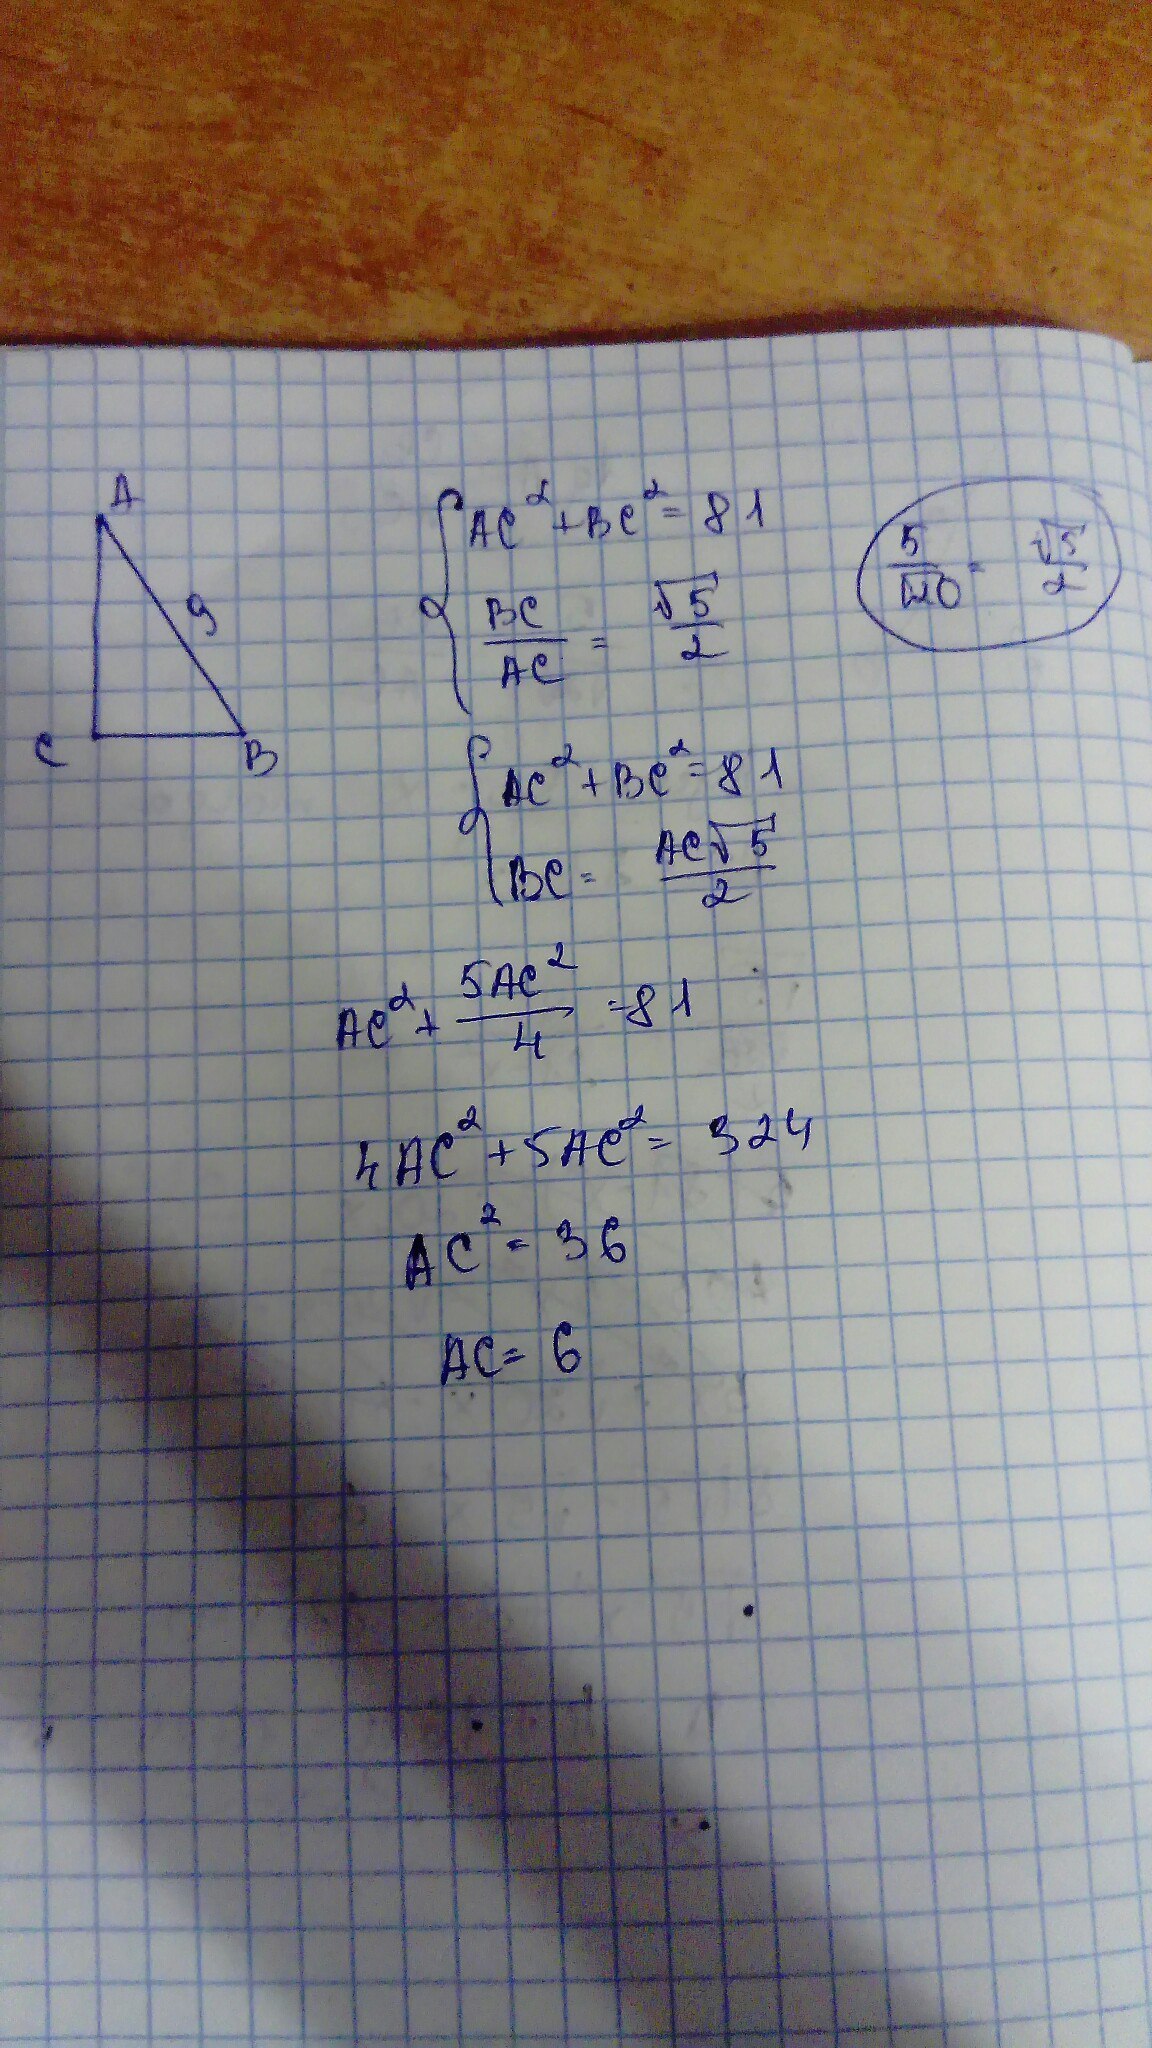 A
9
C
B
AC² + BC² = 81
BC/AC = √5/2
5/√20 = √5/2
AC² + BC² = 81
BC = AC√5/2
AC² + 5AC²/4 = 81
4AC² + 5AC² = 324
AC² = 36
AC = 6